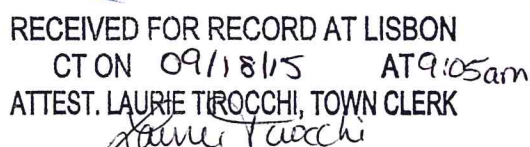 RECEIVED FOR RECORD AT LISBON
CT ON 09/18/15 AT 9:05am
ATTEST. LAURIE TIROCCHI, TOWN CLERK
Laurie Tirocchi